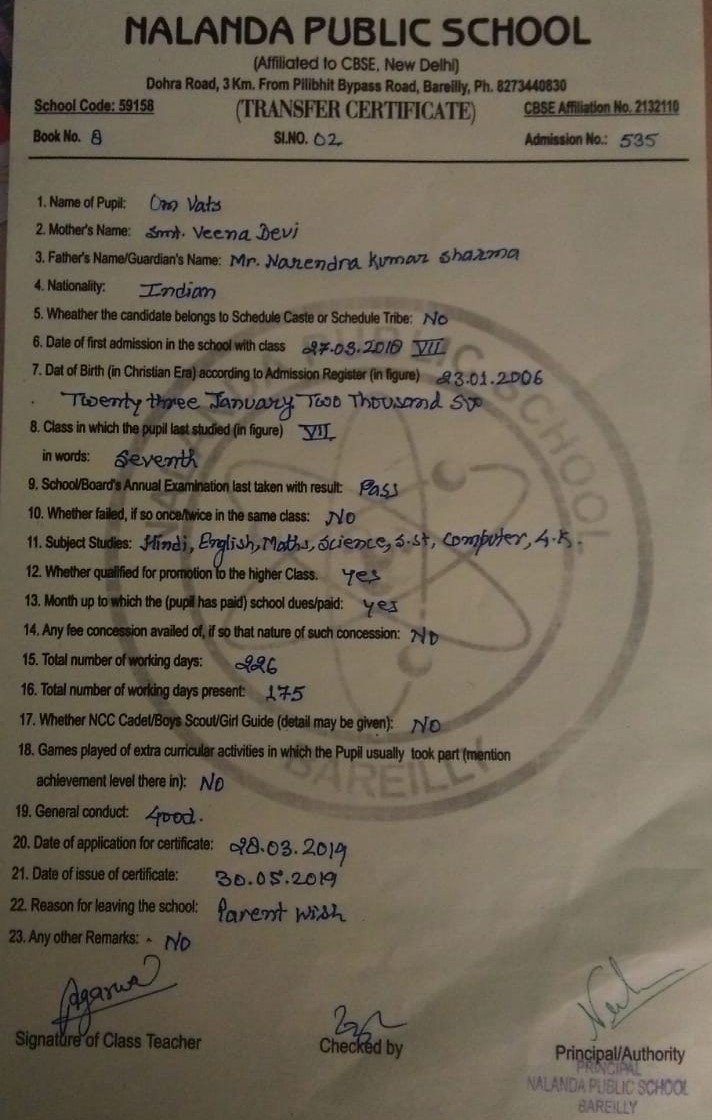 NALANDA PUBLIC SCHOOL
(Affiliated to CBSE, New Delhi)
Dohra Road, 3 Km. From Pilibhit Bypass Road, Bareilly, Ph. 8273440830
School Code: 59158 (TRANSFER CERTIFICATE) CBSE Affiliation No. 2132110
Book No. 8 Sl.NO. 02 Admission No.: 535
1. Name of Pupil: Om Vats
2. Mother's Name: Smt. Veena Devi
3. Father's Name/Guardian's Name: Mr. Narendra Kumar Sharma
4. Nationality: Indian
5. Wheather the candidate belongs to Schedule Caste or Schedule Tribe: No
6. Date of first admission in the school with class 27.03.2018 VII
7. Dat of Birth (in Christian Era) according to Admission Register (in figure) 23.01.2006
Twenty three January Two Thousand Six
8. Class in which the pupil last studied (in figure) VII
in words: Seventh
9. School/Board's Annual Examination last taken with result: Pass
10. Whether failed, if so once/twice in the same class: No
11. Subject Studies: Hindi, English, Maths, Science, S.st, Computer, G.K.
12. Whether qualified for promotion to the higher Class. yes
13. Month up to which the (pupil has paid) school dues/paid: yes
14. Any fee concession availed of, if so that nature of such concession: No
15. Total number of working days: 226
16. Total number of working days present: 175
17. Whether NCC Cadet/Boys Scout/Girl Guide (detail may be given): No
18. Games played of extra curricular activities in which the Pupil usually took part (mention
achievement level there in): No
19. General conduct: Good.
20. Date of application for certificate: 28.03.2019
21. Date of issue of certificate: 30.05.2019
22. Reason for leaving the school: Parent wish
23. Any other Remarks: - No
Agarwal
Signature of Class Teacher Checked by Principal/Authority
PRINCIPAL
NALANDA PUBLIC SCHOOL
BAREILLY
PUBLIC SCHOOL
BAREILLY